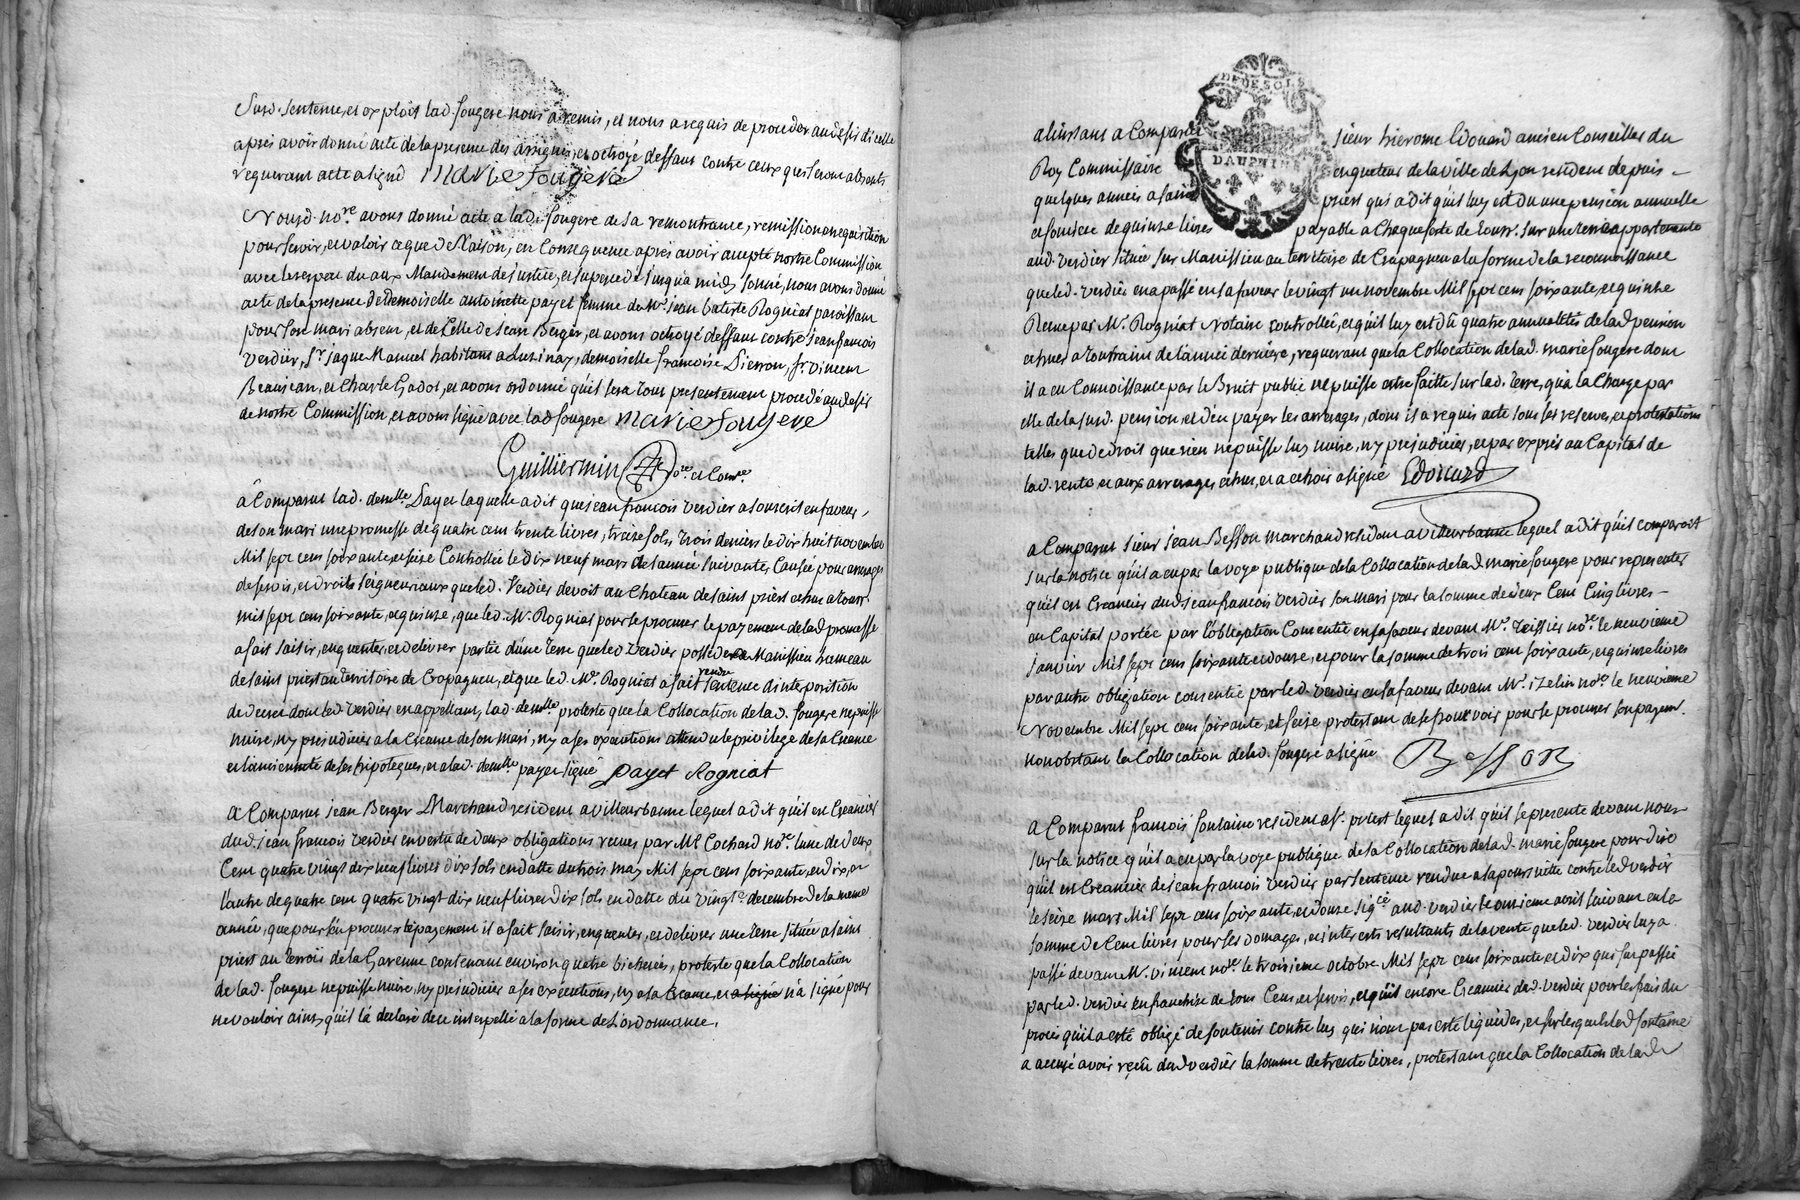 Susd. sentence, et exploit lad. fougere nous a remis, et nous a requis de proceder audesir dicelle
apres avoir donné acte de la presence des assignés, et octroyé deffaut contre ceux qui seront absents
requerant acte a signé marie fougere
Nousd. nore. avons donné acte a lad. fougere de sa remontrance, remission et requisition
pour servir, et valoir ce que de Raison, en Consequence apres avoir accepté nostre Commission
avec le respect du aux Mandement de justice, et supercedé jusqu'a midy sonné, nous avons donné
acte de la presence de demoiselle antoinette payet femme de Mr. jean batiste Rogniat paroissant
pour son mari absent, et de Celle de jean Berger, et avons octroyé deffaut contre jean francois
verdier, Sr. jaque Manuel habitant a Luzinay, demoiselle francoise Pierron, Sr. vincent
Beaujean, et Charle Gadot, et avons ordonné qu'il sera tout presentement procedé au desir
de nostre Commission, et avons signé avec lad. fougere marie fougere
Guilliermin nore. et Comre.
a Comparut lad. demlle. Payet laquelle a dit que jean francois verdier a souscrit en faveur
de son mari une promesse de quatre cent trente livres, treize sols, trois deniers le dix huit novembre
Mil sept cens soixante, et seize Controllée le dix neuf mars de l'année suivante, Causée pour arrerages
de servis, et droits seigneuriaux que led. Verdier devoit au Chateau de saint priest echus a tousst.
mil sept cens soixante, et quinze, que led. Mr. Rogniat pour se procurer le payement de lad. promesse
a fait saisir, enquenter, et delivrer partie d'une Terre que led. verdier possede a Manissieu hameau
de saint priest au territoire de Crapagneu, et que led. Mr. Rogniat a fait rendre sentence d'interposition
de decret dont led. verdier est appellant, lad. demlle. proteste que la Collocation de lad. fougere ne puisse
nuire, ny prejudicier a la Creance de son mari, ny a ses executions attendu le privilege de sa Creance
et l'ancienneté de ses hipoteques, et a lad. demlle. payet signé payet Rogniat
a Comparut jean Berger Marchand resident a villeurbanne lequel a dit qu'il est Creancier
dud. jean francois verdier en vertu de deux obligations recues par Me. Cochard nore. l'une de deux
Cent quatre vingt dix neuf livres dix sols en datte du trois may Mil sept cens soixante, et dix, et
l'autre de quatre cent quatre vingt dix neuf livres dix sols en datte du vingt decembre de la meme
année, que pour s'en procurer le payement il a fait saisir, enquenter, et delivrer une Terre située a saint
priest au terroir de la Garenne contenant environ quatre bicherées, proteste que la Collocation
de lad. fougere ne puisse nuire, ny prejudicier a ses executions, ny a sa Creance, et a signé n'a signé pour
ne vouloir ainsy qu'il l'a declaré de ce interpellé a la forme de L'ordonnance.
DE DE SOLS
DAUPHINE
a l'instant a Comparu sieur hierome Edouard ancien Conseiller du
Roy Commissaire enqueteur de la ville de Lyon resident depuis
quelques années a saint priest qui a dit qu'il luy est du une pension annuelle
et fonciere de quinze livres payable a Chaque feste de tousst. sur une terre appartenante
aud. verdier située sur Manissieu au territoire de Crapagneu a la forme de la reconnoissance
que led. verdier en a passé en sa faveur le vingt un novembre Mil sept cens soixante, et quinze
Recue par Mr. Rogniat Notaire controllée, et qu'il luy est dû quatre annualités de lad. pension
echues a toussaint de l'année derniere, requerant que la Collocation de lad. marie fougere dont
il a eu Connoissance par le Bruit public ne puisse estre faitte sur lad. terre, qu'a la Charge par
elle de la susd. pension, et d'en payer les arrerages, dont il a requis acte sous ses reserves, et protestations
telles que de droit que rien ne puisse luy nuire, ny prejudicier, et par exprés au Capital de
lad. rente et aux arrerages echus, et a ce hois a signé Edouard
a Comparut sieur jean Besson marchand resident a villeurbanne lequel a dit qu'il comparoit
sur la notice qu'il a eu par la voye publique de la Collocation de lad. marie fougere pour representer
qu'il est Creancier dud. jean francois verdier son mari pour la somme de deux Cent Cinq livres
en Capital portée par l'obligation Consentie en sa faveur devant Mr. teissier nore. le neuvieme
janvier Mil sept cens soixante et douze, et pour la somme de trois cent soixante, et quinze livres
par autre obligation consentie par led. verdier en sa faveur devant Mr. izelin nore. le neuvieme
Novembre Mil sept cens soixante, et seize protestant de se pourvoir pour se procurer son payement
nonobstant la Collocation de lad. fougere a signé Besson
a Comparut francois fontaine resident a St. priest lequel a dit qu'il se presente devant nous
sur la notice qu'il a eu par la voye publique de la Collocation de lad. marie fougere pour dire
qu'il est Creancier de jean francois verdier par sentence rendue a sa poursuitte contre led. verdier
le seize mars Mil sept cens soixante, et douze sigée. aud. verdier le onzieme avril suivant en la
somme de Cent livres pour ses domages, et interests resultants de la vente que led. verdier luy a
passé devant Mr. vincent nore. le troisieme octobre Mil sept cens soixante et dix qui fut passée
par led. verdier en franchise de tous Cens, et servis, et qu'il est encore Creancier dud. verdier pour les frais du
procés qu'il a esté obligé de soutenir contre luy qui n'ont pas esté liquidés, et sur lesquels led. fontaine
a accusé avoir reçu dud. verdier la somme de trente livres, protestant que la Collocation de lad.